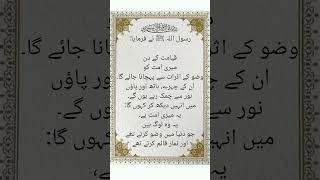 رسول اللہ ﷺ نے فرمایا:
قیامت کے دن
میری امت کو
وضو کے اثرات سے پہچانا جائے گا۔
ان کے چہرے، ہاتھ اور پاؤں
نور سے چمک رہے ہوں گے۔
میں انہیں دیکھ کر کہوں گا:
یہ میری امت ہے۔
یہ وہ لوگ ہیں
جو دنیا میں وضو کرتے تھے
اور نماز قائم کرتے تھے